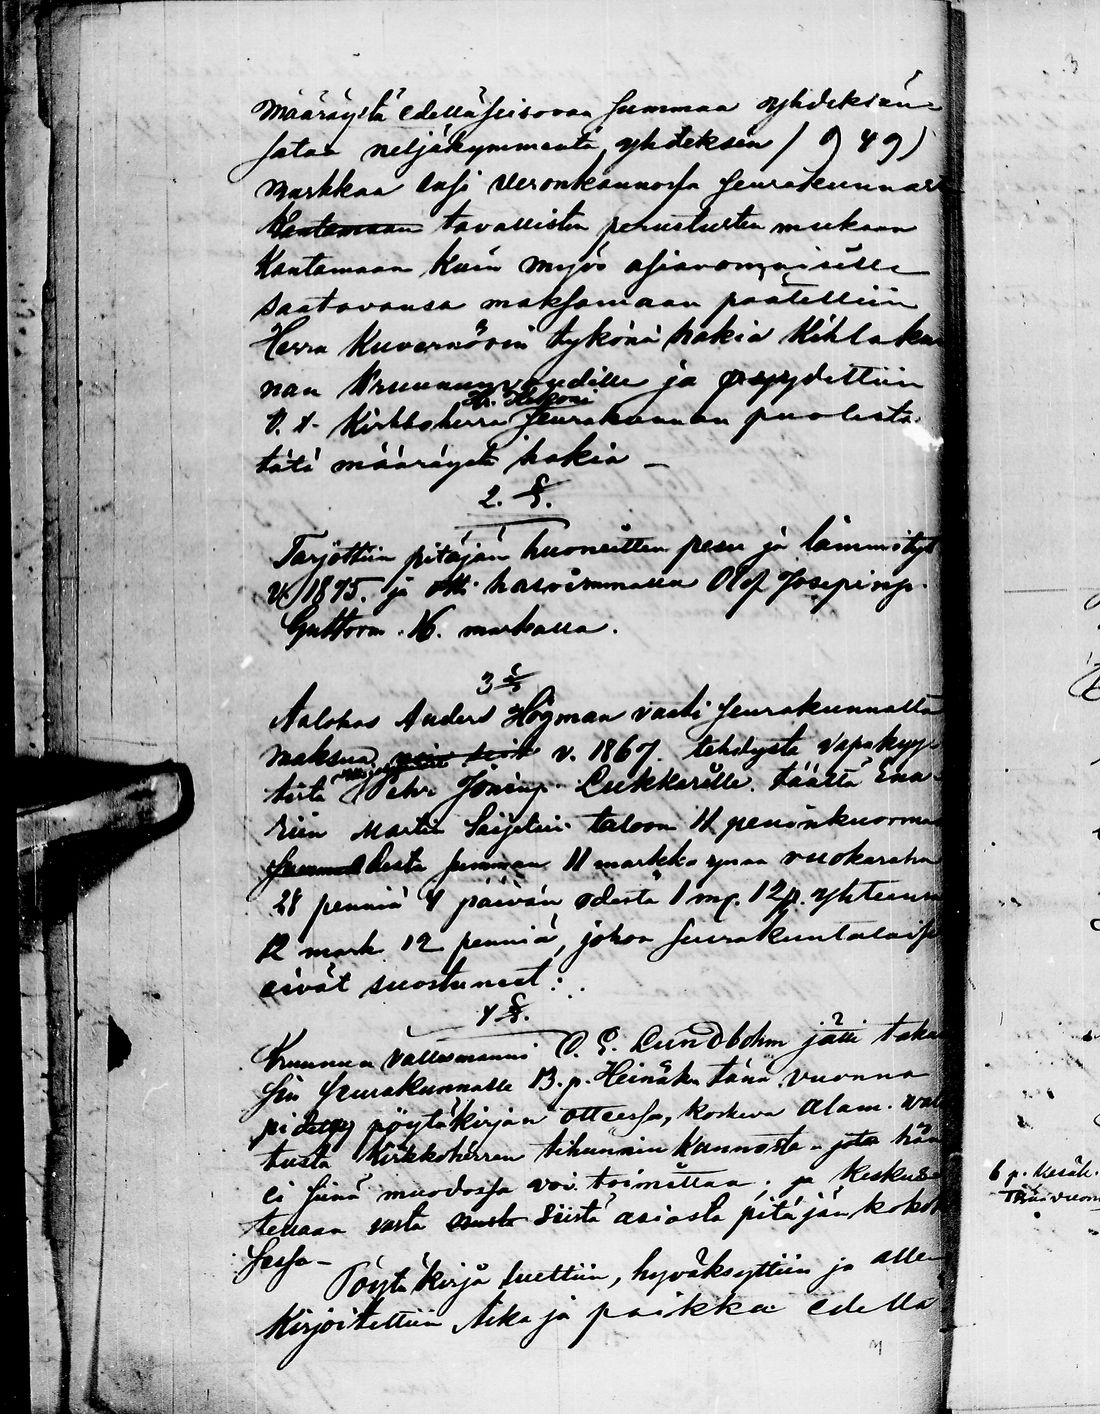 määräystä edelläseisovan summan yhdeksän-
sataa neljäkymmentä yhdeksän /949/
markkaa ensi veronkannossa seurakunnasta
Kantamaan tavallisten perustusten mukaan
Kantamaan kuin myös asianomaisille
saatavansa maksamaan päätettiin
Herra Kuvernöörin tykönä hakia Kihlakun
nan Kruununvoudille ja pyydettiin
V. t. Kirkkoherra seurakunnan puolesta
tätä määräystä hakia —
2. §.
Tarjottiin pitäjän huoneitten pesu ja lämmitys
v. 1875. ja otti halvimmalla Olof Josepinp.
Guttorm. 16. markalla.
3 §
Talokas Anders Högman vaati seurakunnalta
maksua v. 1867. tehdystä vapakyy-
tistä Petri Joninp. Lukkarille. täältä Ena-
riin Martin taloon 11 penink
summan 11 markka ynnä vuokaraha
28 penniä 4 päivän edestä 1 m. 12 p. yhteensä
12 mark. 12 penniä, johon seurakuntalaise
eivät suostuneet:
4 §.
Kruunun vallesmanni C. G. Lundbohm jätti takai
sin Seurakunnalle 13. p. Heinäku tänä vuonna
pidetyn pöytäkirjan otteessa, koskeva alam. val
tusta Kirkkoherran tihunnin kannosta - jota hän
ei siinä muodossa voi toimittaa; ja keskus
tellaan vasta siistä asiasta pitäjän kokok
sessa —
Pöytäkirja luettiin, hyväksyttiin ja alle
kirjoitettiin Aika ja paikka edellä
6 p. Kesäk.
Tänä vuonn
3